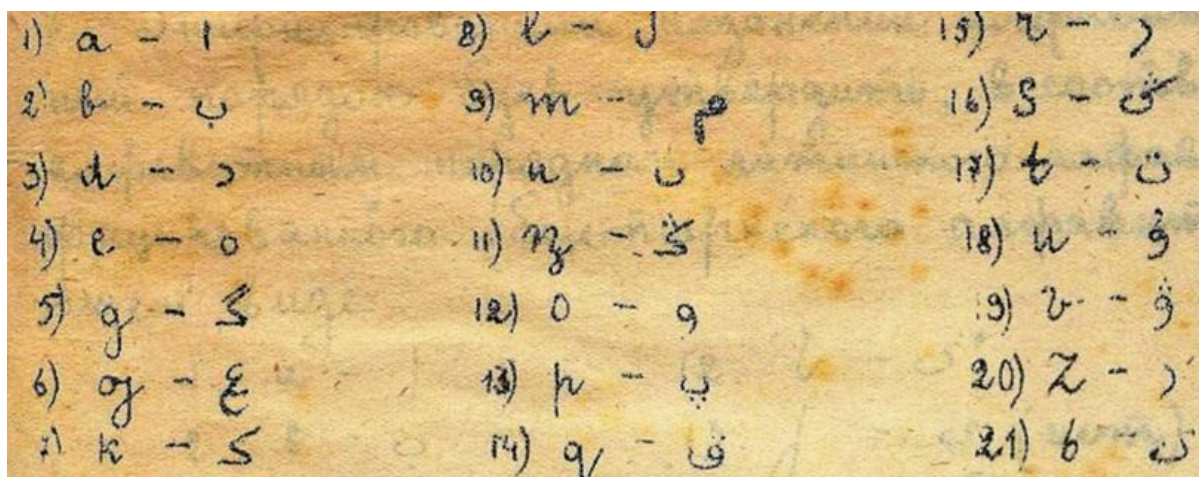 1) a – ا
2) в – ب
3) d – د
4) e – ە
5) g – گ
6) ƣ – ع
7) k – ك
8) l – ل
9) m – م
10) n – ن
11) ꞑ – ڭ
12) o – و
13) p – پ
14) q – ق
15) r – ر
16) s – س
17) t – ت
18) u – ۇ
19) v – ۋ
20) z – ز
21) ь – ى